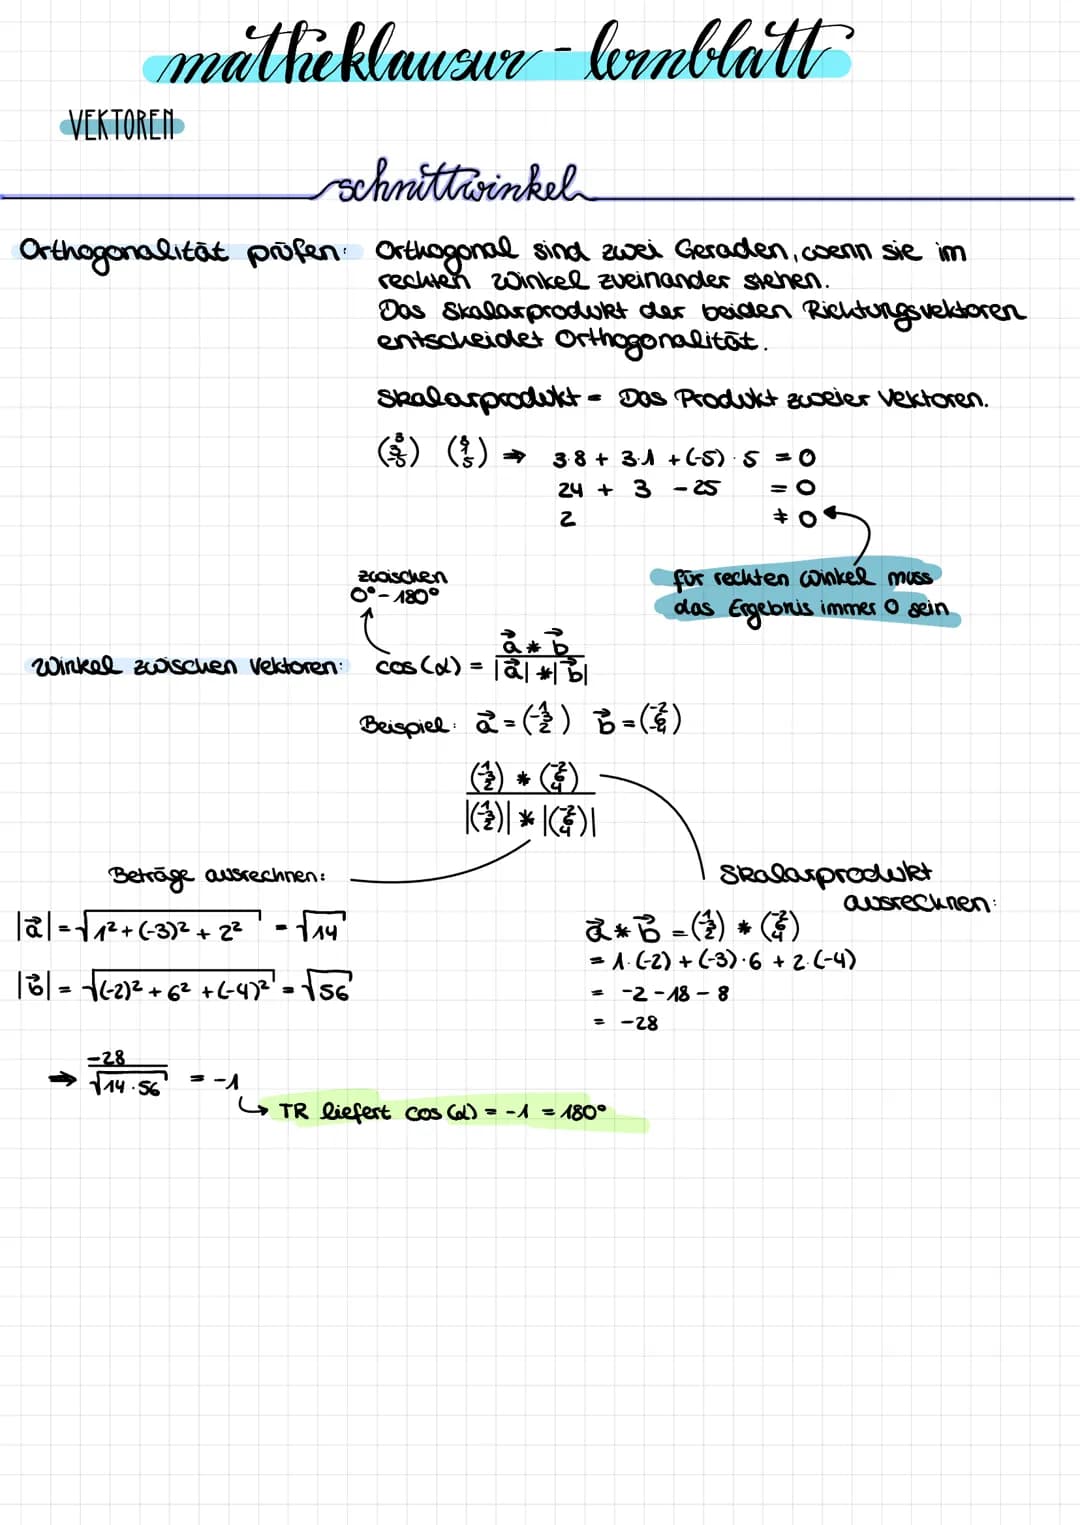 matheklausur - lernblatt
VEKTOREN
schnittwinkel
Orthogonalität prüfen: Orthogonal sind zwei Geraden, wenn sie im
rechten Winkel zueinander stehen.
Das Skalarprodukt der beiden Richtungsvektoren
entscheidet Orthogonalität.
Skalarprodukt = Das Produkt zweier Vektoren.
(3 3 -5) (8 1 5) → 3·8 + 3·1 + (-5)·5 = 0
24 + 3 - 25 = 0
2 ≠ 0
für rechten Winkel muss
das Ergebnis immer 0 sein
zwischen
0° - 180°
Winkel zwischen Vektoren: cos(α) = a⃗ * b⃗ / |a⃗| * |b⃗|
Beispiel: a⃗ = (1 -3 2) b⃗ = (-2 6 -4)
(1 -3 2) * (-2 6 -4)
|(1 -3 2)| * |(-2 6 -4)|
Beträge ausrechnen:
Skalarprodukt
ausrechnen:
|a⃗| = √(1² + (-3)² + 2²) = √14
|b⃗| = √((-2)² + 6² + (-4)²) = √56
a⃗ * b⃗ = (1 -3 2) * (-2 6 -4)
= 1·(-2) + (-3)·6 + 2·(-4)
= -2 - 18 - 8
= -28
→ -28 / √(14·56) = -1
↳ TR liefert cos(α) = -1 = 180°